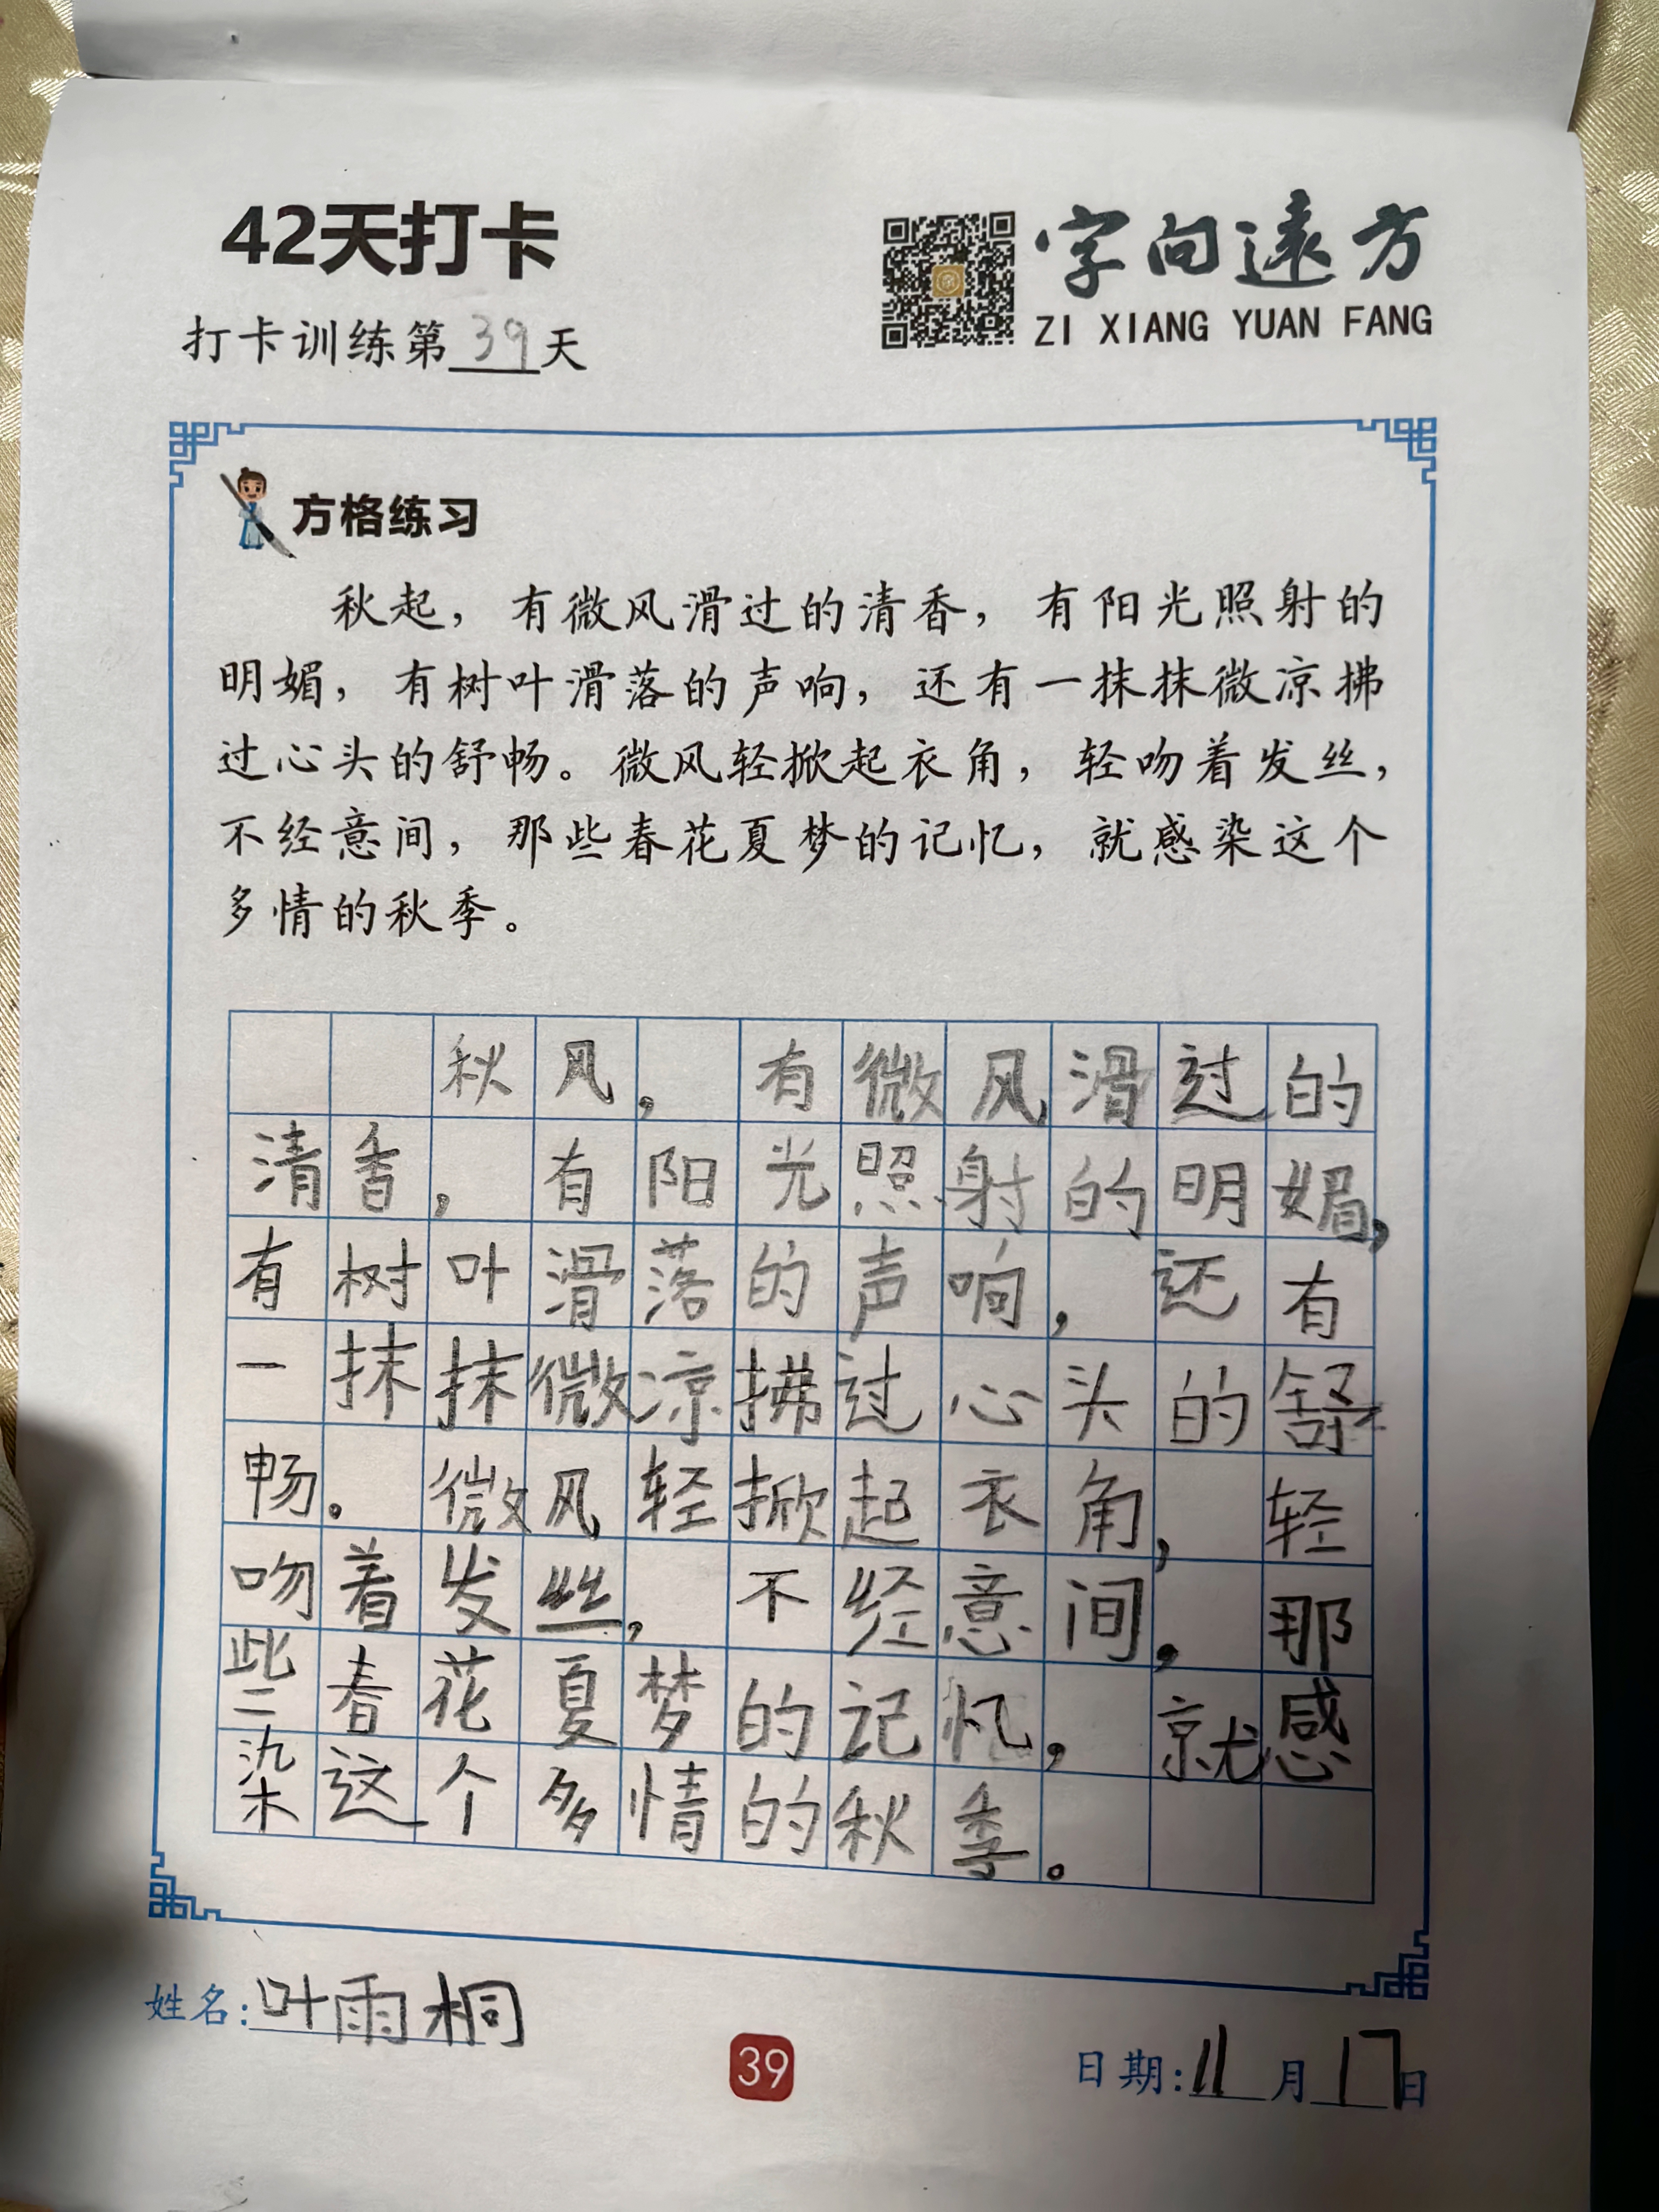 42天打卡
字向遠方
ZI XIANG YUAN FANG
打卡训练第39天
方格练习
秋起，有微风滑过的清香，有阳光照射的
明媚，有树叶滑落的声响，还有一抹抹微凉拂
过心头的舒畅。微风轻掀起衣角，轻吻着发丝，
不经意间，那些春花夏梦的记忆，就感染这个
多情的秋季。
秋风，有微风滑过的
清香，有阳光照射的明媚，
有树叶滑落的声响，还有
一抹抹微凉拂过心头的舒
畅。微风轻掀起衣角，轻
吻着发丝，不经意间，那
些春花夏梦的记忆，就感
染这个多情的秋季。
姓名：叶雨桐
39
日期：11月17日